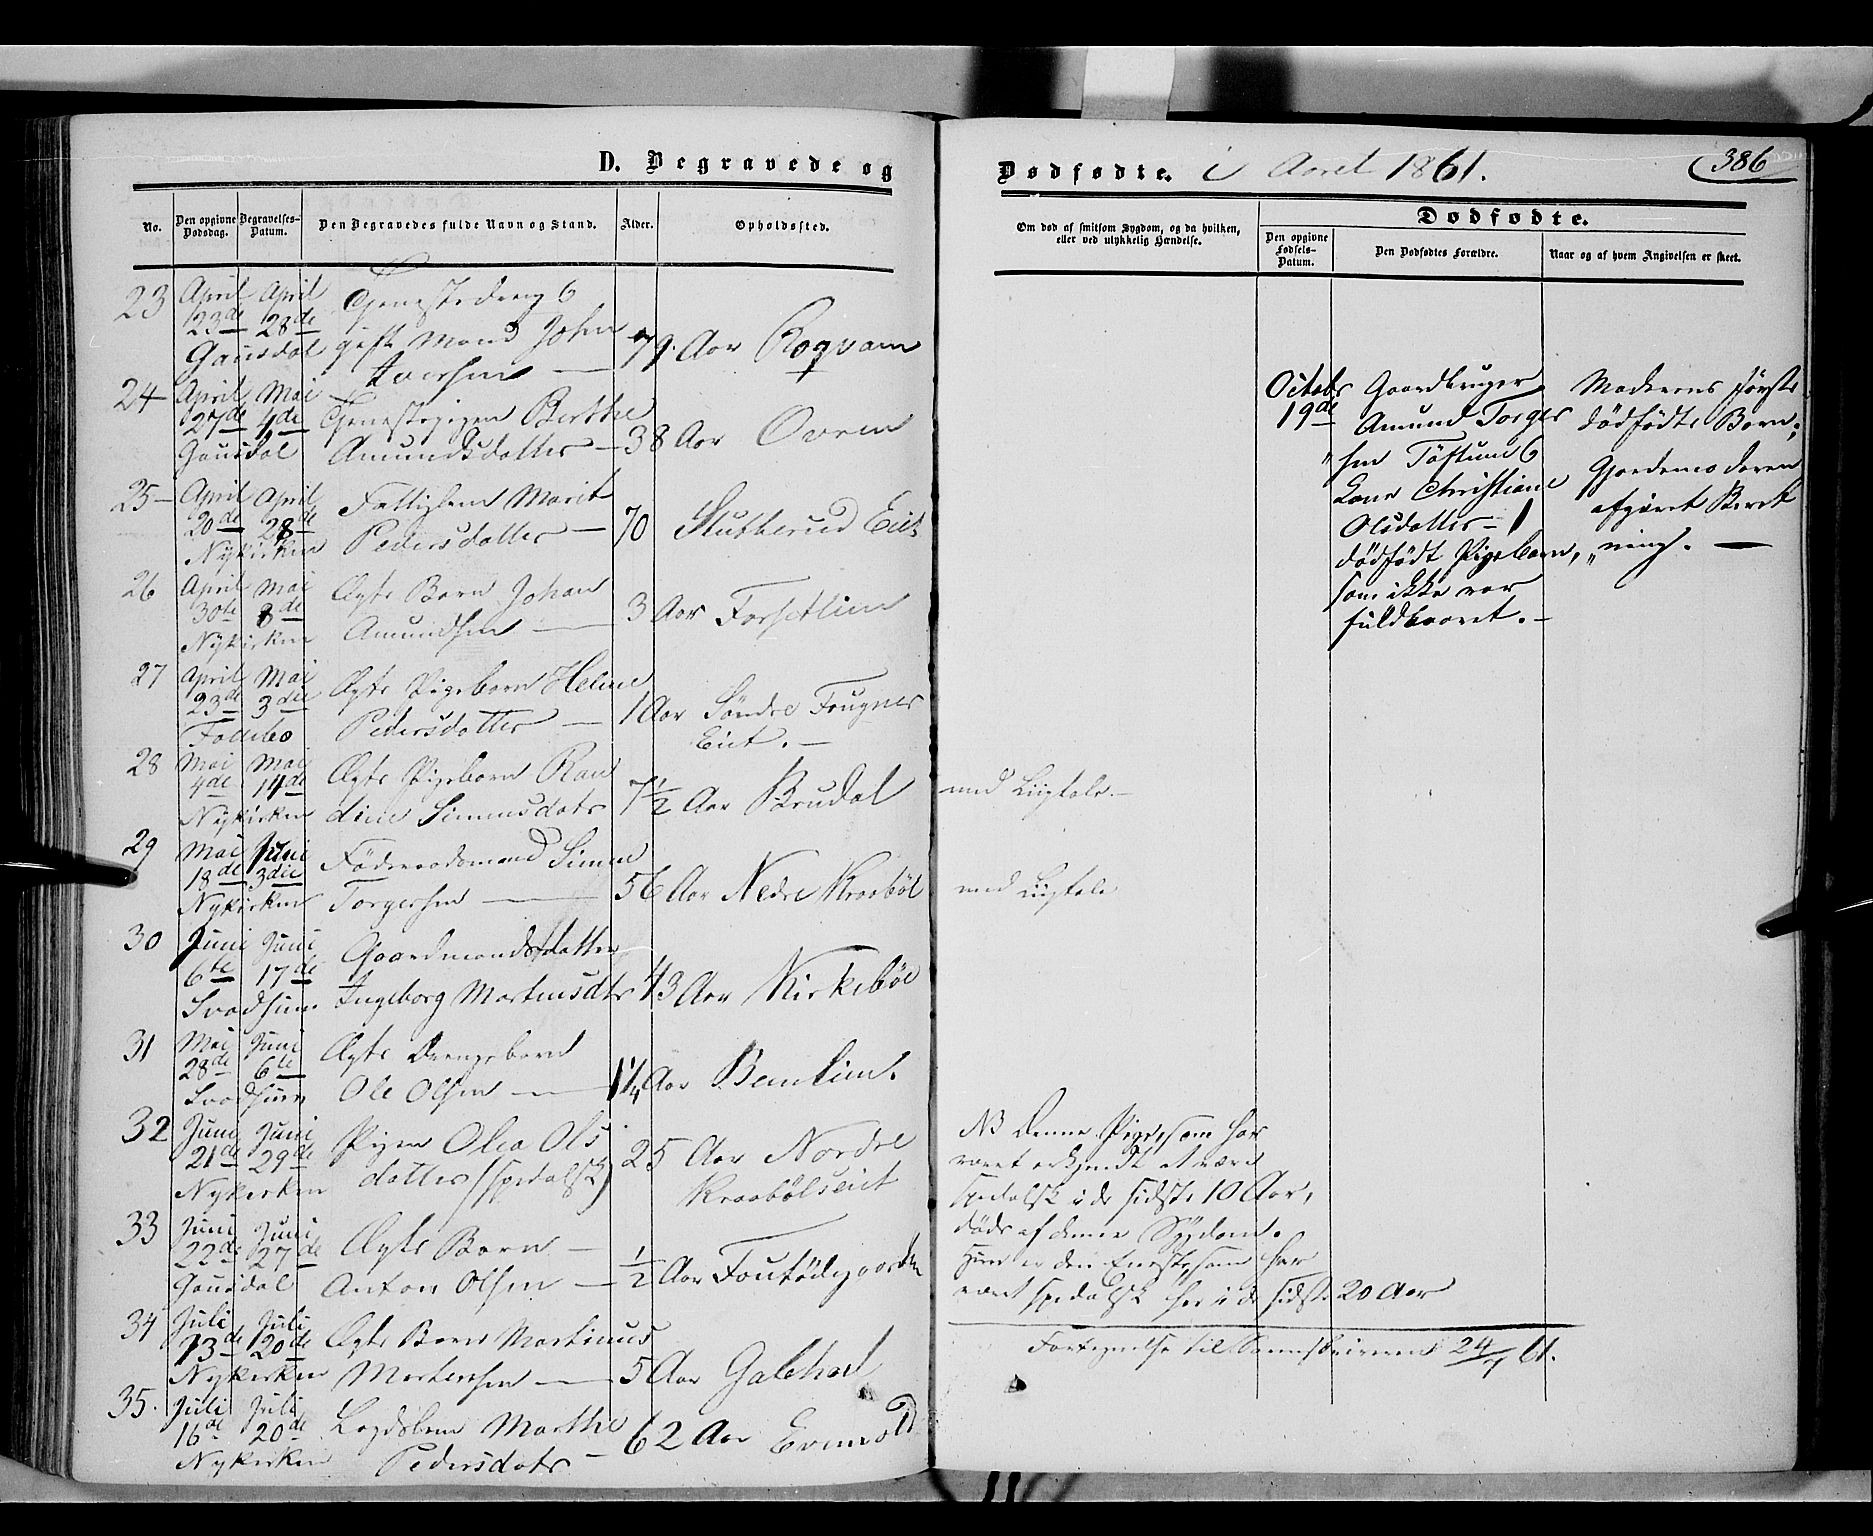 D. Begravede og
No.
Den opgivne Dødsdag.
Begravelses-Datum.
Den Begravedes fulde Navn og Stand.
Alder.
Opholdssted.
23 April 23de April 28de Gausdal
gift Mand John
Iversen — 79. Aar
24 April 27de Mai 4de Gausdal
Tjenestepigen Berthe
Amundsdatter — 38 Aar Ovren
25 April 20de April 28de Nykirken
Fattiglem Marit
Pedersdatter — 70 Stubberud Eiet
26 April 30te Mai 8de Nykirken
Ægte Barn Johan
Amundsen — 3 Aar Forsetlien
27 April 23de Mai 3die Follebo
Ægte Pigebarn Heline
Pedersdatter — 1 Aar Søndre Fougner
Eiet. —
28 Mai 4de Mai 14de Nykirken
Ægte Pigebarn Ran
dine Simensdatr 7½ Aar Brudal
29 Mai 18de Juni 3die Nykirken
Föderaadsmand Simen
Torgersen — 56 Aar Nedre Kraabøl
30 Juni 6te Juni 17de Svadsum
Gaardmandsdatter
Ingeborg Mortensdtr 43 Aar Kirkebøe
31 Mai 28de Juni 6te Svadsum
Ægte Drengebarn
Ole Olsen — 1¼ Aar
32 Juni 21de Juni 29de Nykerken
Pigen Olea Ols
datter (spedalsk) 25 Aar Nordre
Kraabølseiet
33 Juni 22de Juni 27de Gausdal
Ægte Barn —
Anton Olsen — ½ Aar
34 Juli 13de Juli 20de Nykerken
Ægte Barn Martinus
Mortensen — 5 Aar
35. Juli 16de Juli 20de Nykerken
Lægdslem Marthe
Pedersdatr — 62 Aar
Dødfødte. i Aaret 1861.
386
Om død af smitsom Sygdom, og da hvilken,
eller ved ulykkelig Hændelse.
Dødfødte.
Den opgivne Fødsels-Datum.
Den Dødfødtes Forældre.
Naar og af hvem Angivelsen er skeet.
Octobr 19de
Gaardbruger
Amund Torger
"sen Töftum &
Kone Christiane
Olsdatter — 1
dödfödt Pigebarn,
som ikke var
fuldbaaret. —
Moderens første
dødfödte Barn;
Gjordemoderen
afgivet Beret
"ning. —
med Liigtale. —
med Liigtale
NB Denne Pige, som har
været erkjendt at være
spedalsk i de sidste 10 Aar,
døde af denne Sygdom.
Hun er den Eneste, som har
været spedalsk her i de sidste 20 Aar
Fortegnelse til Sorenskriveren 24/7 61.